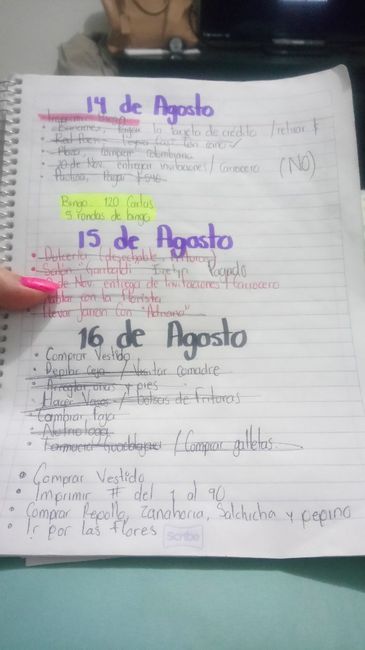 14 de Agosto
Imprimir Bingo
• Banamex, Pagar la tarjeta de crédito / retirar $
• Plaza, comprar
• 20 de Nov. entregar invitaciones / Carrocero (NO)
• Pagar $
Bingo 120 Cartas
5 rondas de bingo
15 de Agosto
• Dulcería (desechable, frituras)
• Salón "Garibaldi" Pagado
de Nov. entrega de Invitaciones / Carrocero
Hablar con la florista
Llevar Jamón con "Adriana"
16 de Agosto
• Comprar Vestido
• Depilar Ceja / Visitar comadre
• Arreglar uñas y pies
• Hacer Vasos / bolsas de frituras
• Comprar faja
• Nutriologa
• Farmacia Guadalajara / Comprar galletas
• Comprar Vestido
• Imprimir # del 1 al 90
• Comprar Repollo, Zanahoria, Salchicha y pepino
• Ir por las Flores
Scribe